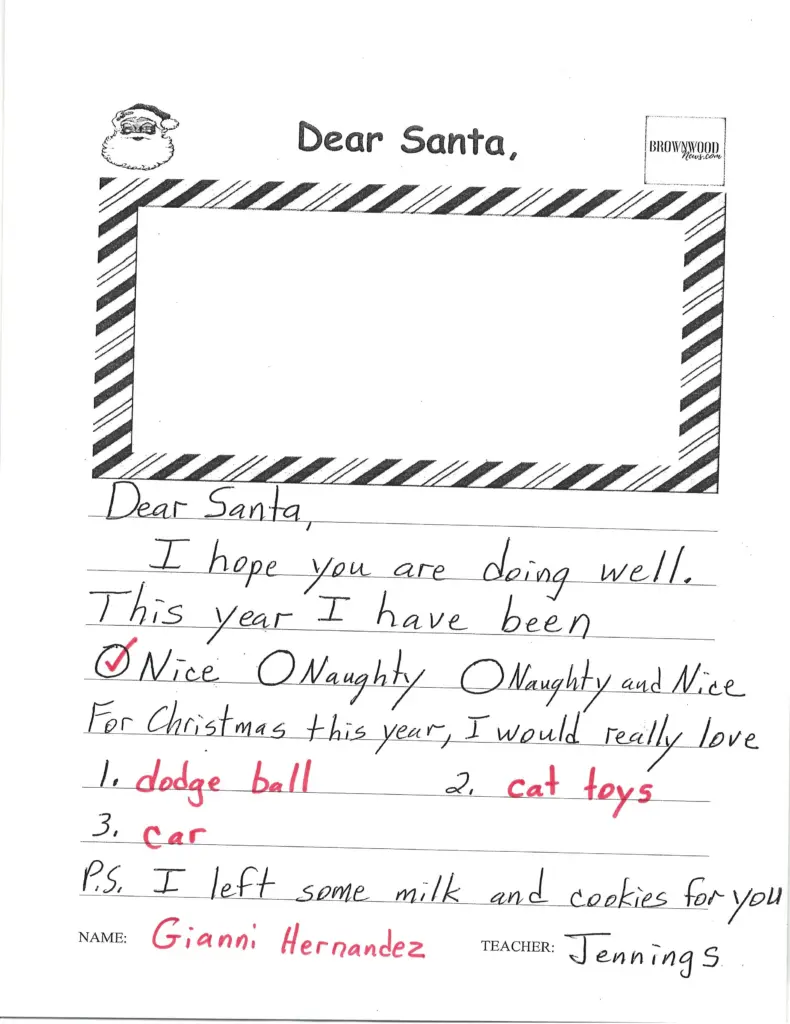 Dear Santa,
BROWNWOOD
News.com
Dear Santa,
I hope you are doing well.
This year I have been
Nice Naughty Naughty and Nice
For Christmas this year, I would really love
1. dodge ball 2. cat toys
3. car
P.S. I left some milk and cookies for you
NAME: Gianni Hernandez TEACHER: Jennings